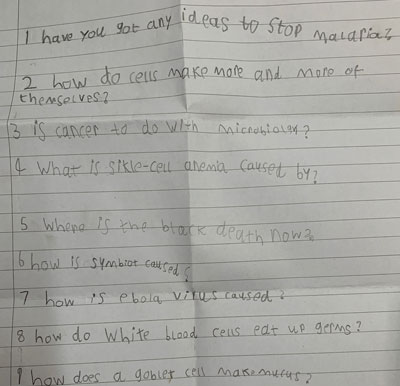 1 have you got any ideas to stop malaria?
2 how do cells make more and more of
themselves?
3 is cancer to do with microbioley?
4 What is sikle-cell anemia caused by?
5 Where is the black death now?
6 how is symbiot caused?
7 how is ebola virus caused?
8 how do white blood cells eat up germs?
9 how does a goblet cell make mucus?